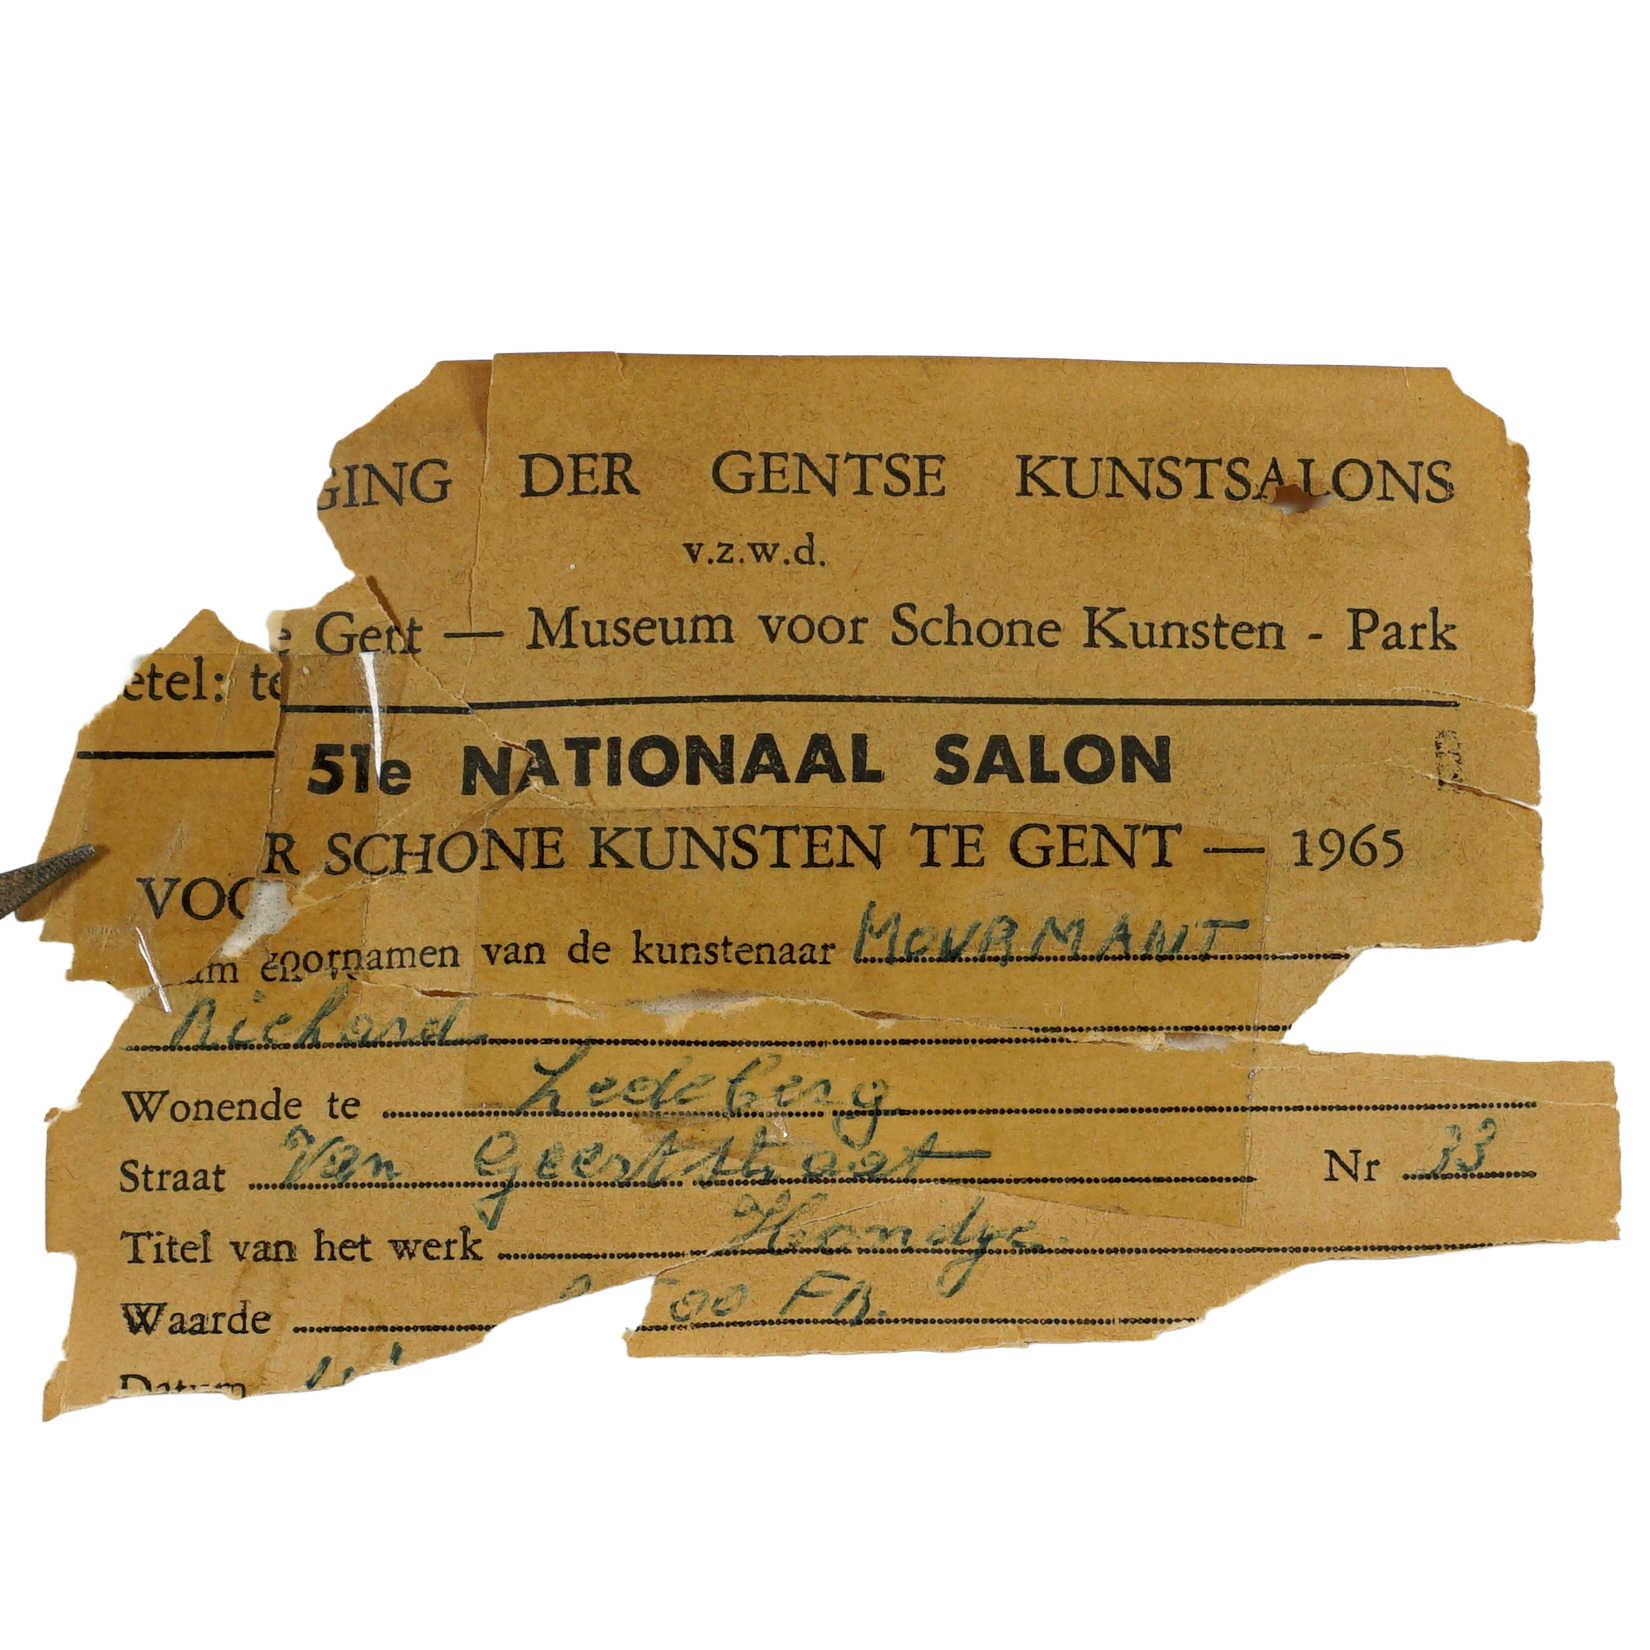 GING DER GENTSE KUNSTSALONS
v.z.w.d.
etel: te Gent — Museum voor Schone Kunsten - Park
51e NATIONAAL SALON
VOOR SCHONE KUNSTEN TE GENT — 1965
am en voornamen van de kunstenaar MOURMANT
Richard
Wonende te Ledeberg
Straat Van Geertstraat Nr 33
Titel van het werk Hondje
Waarde 00 FB.
Datum